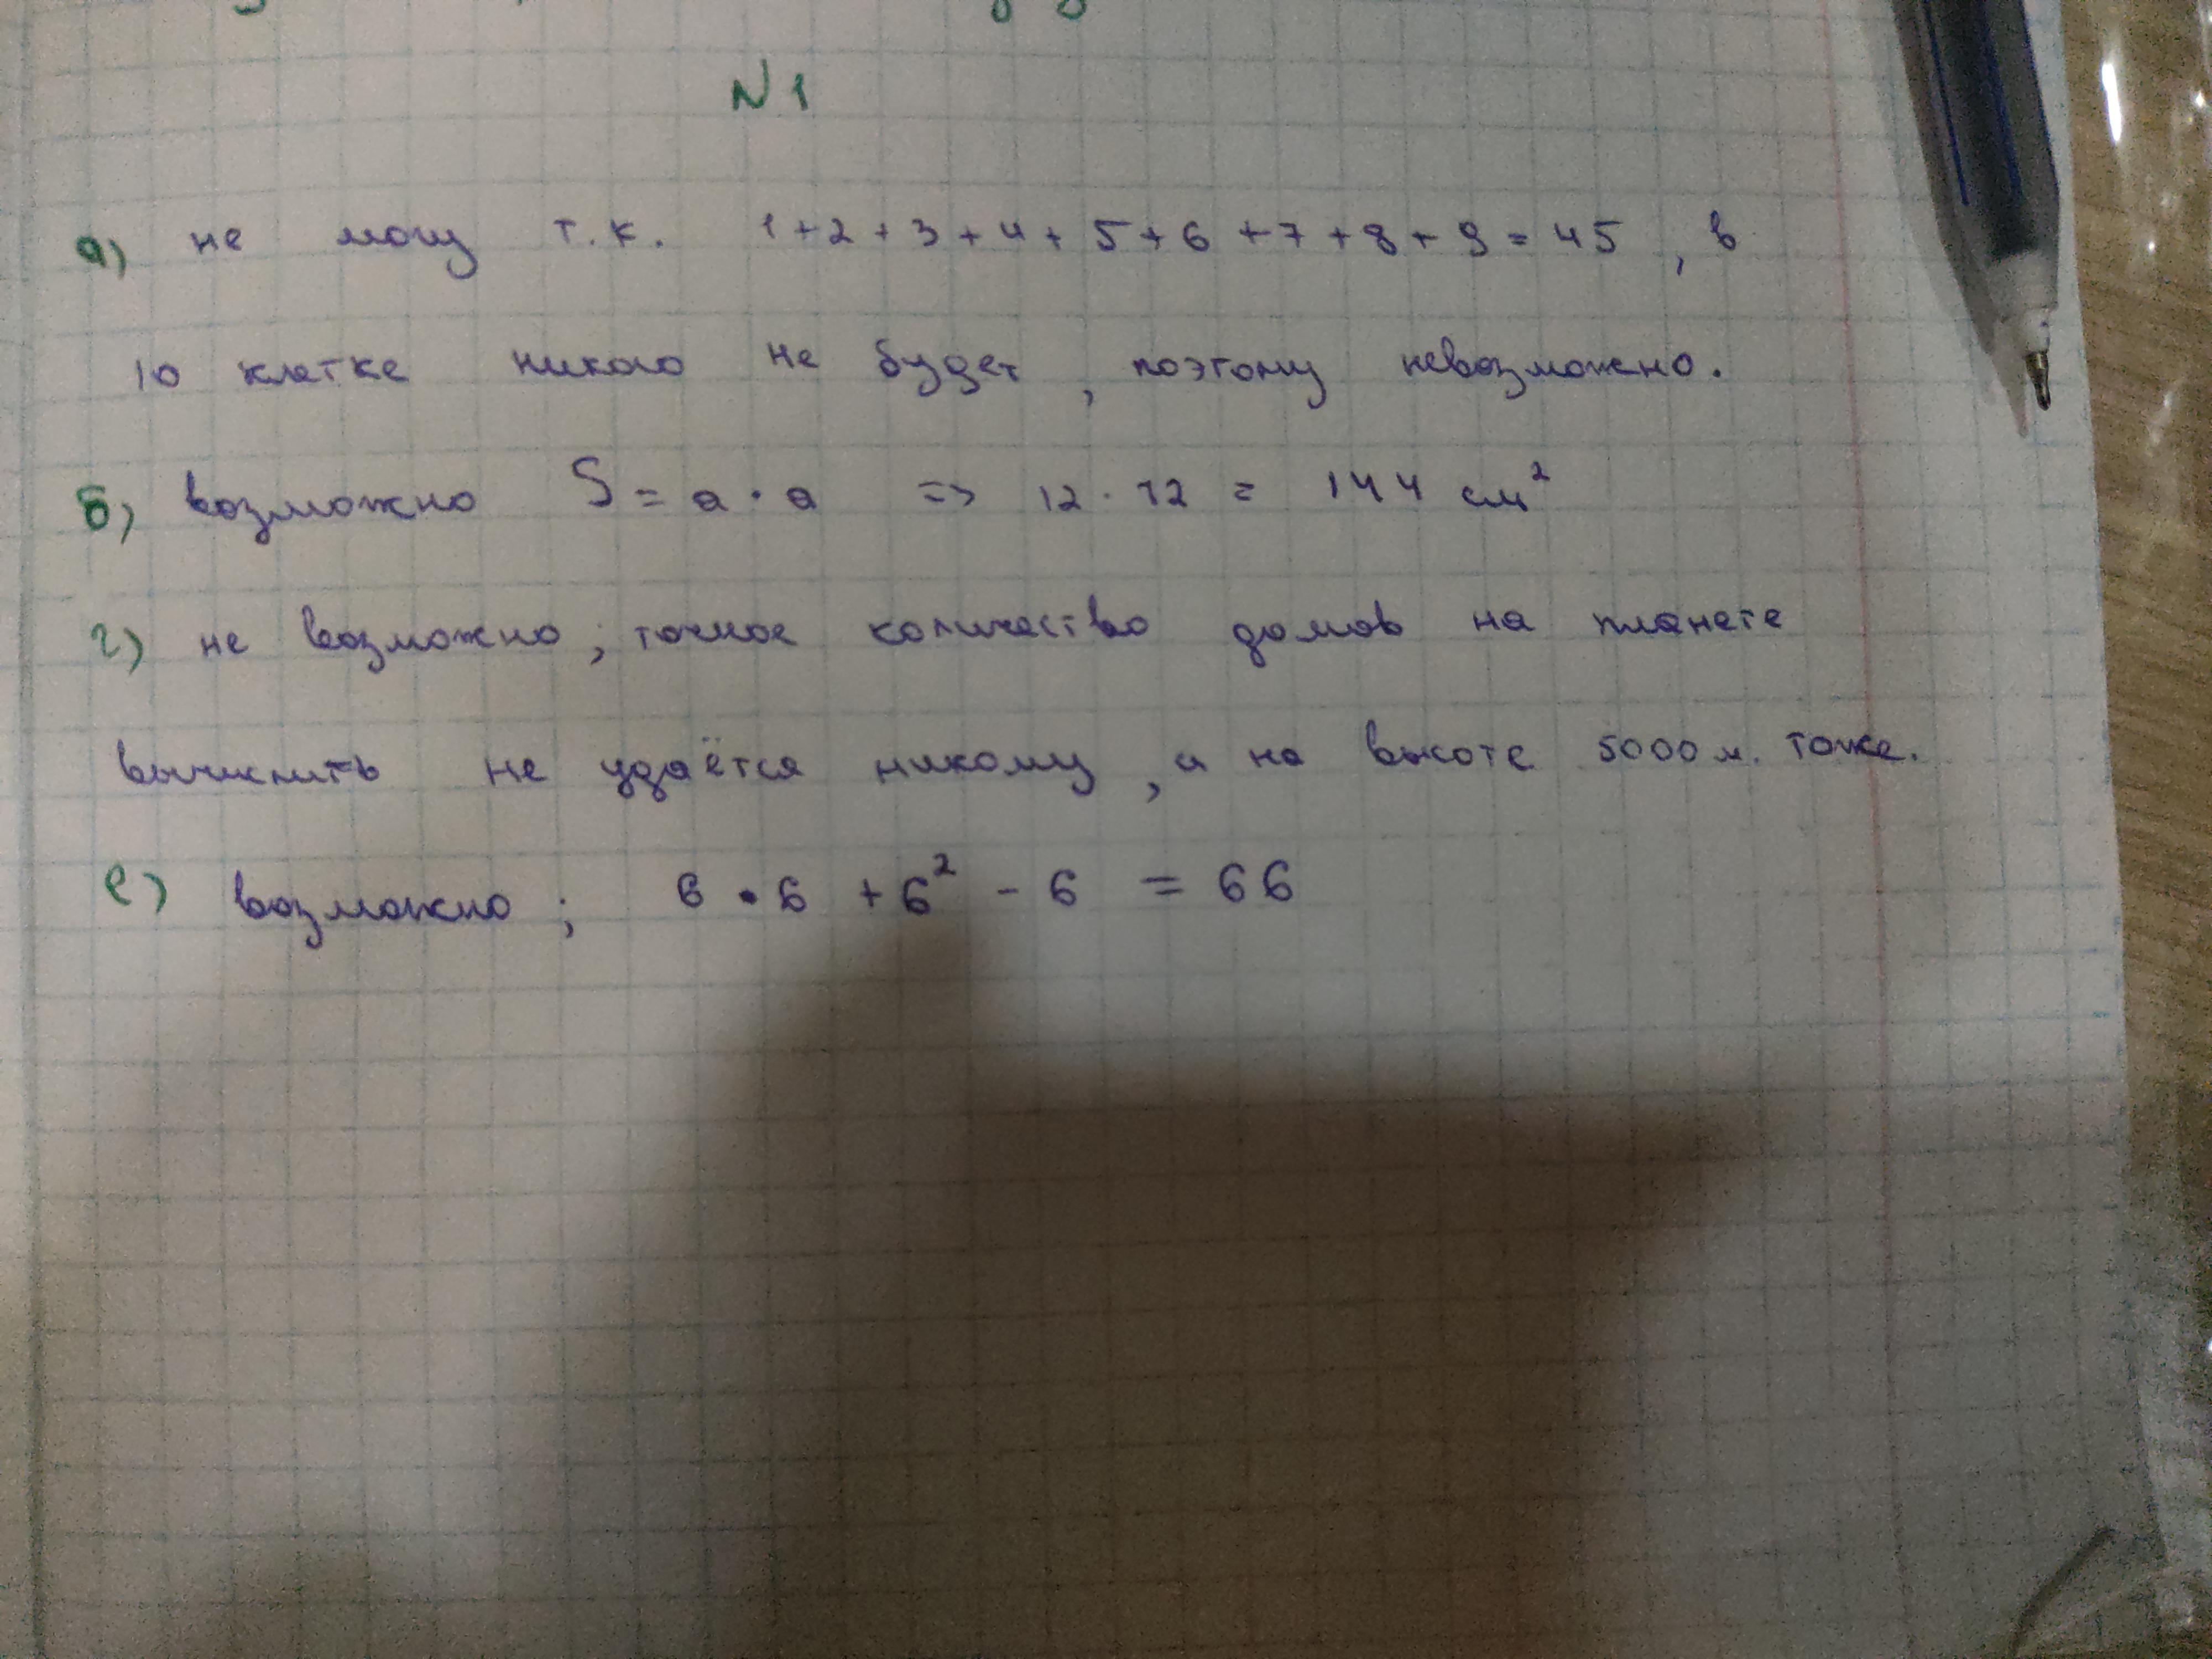 N 1
а) не могу т.к. 1+2+3+4+5+6+7+8+9=45, в
10 клетке никого не будет, поэтому невозможно.
б) возможно S = a · a => 12 · 12 = 144 см²
г) не возможно; точное количество домов на планете
вычислить не удаётся никому, и на высоте 5000 м. тоже.
е) возможно; 6 · 6 + 6² - 6 = 66